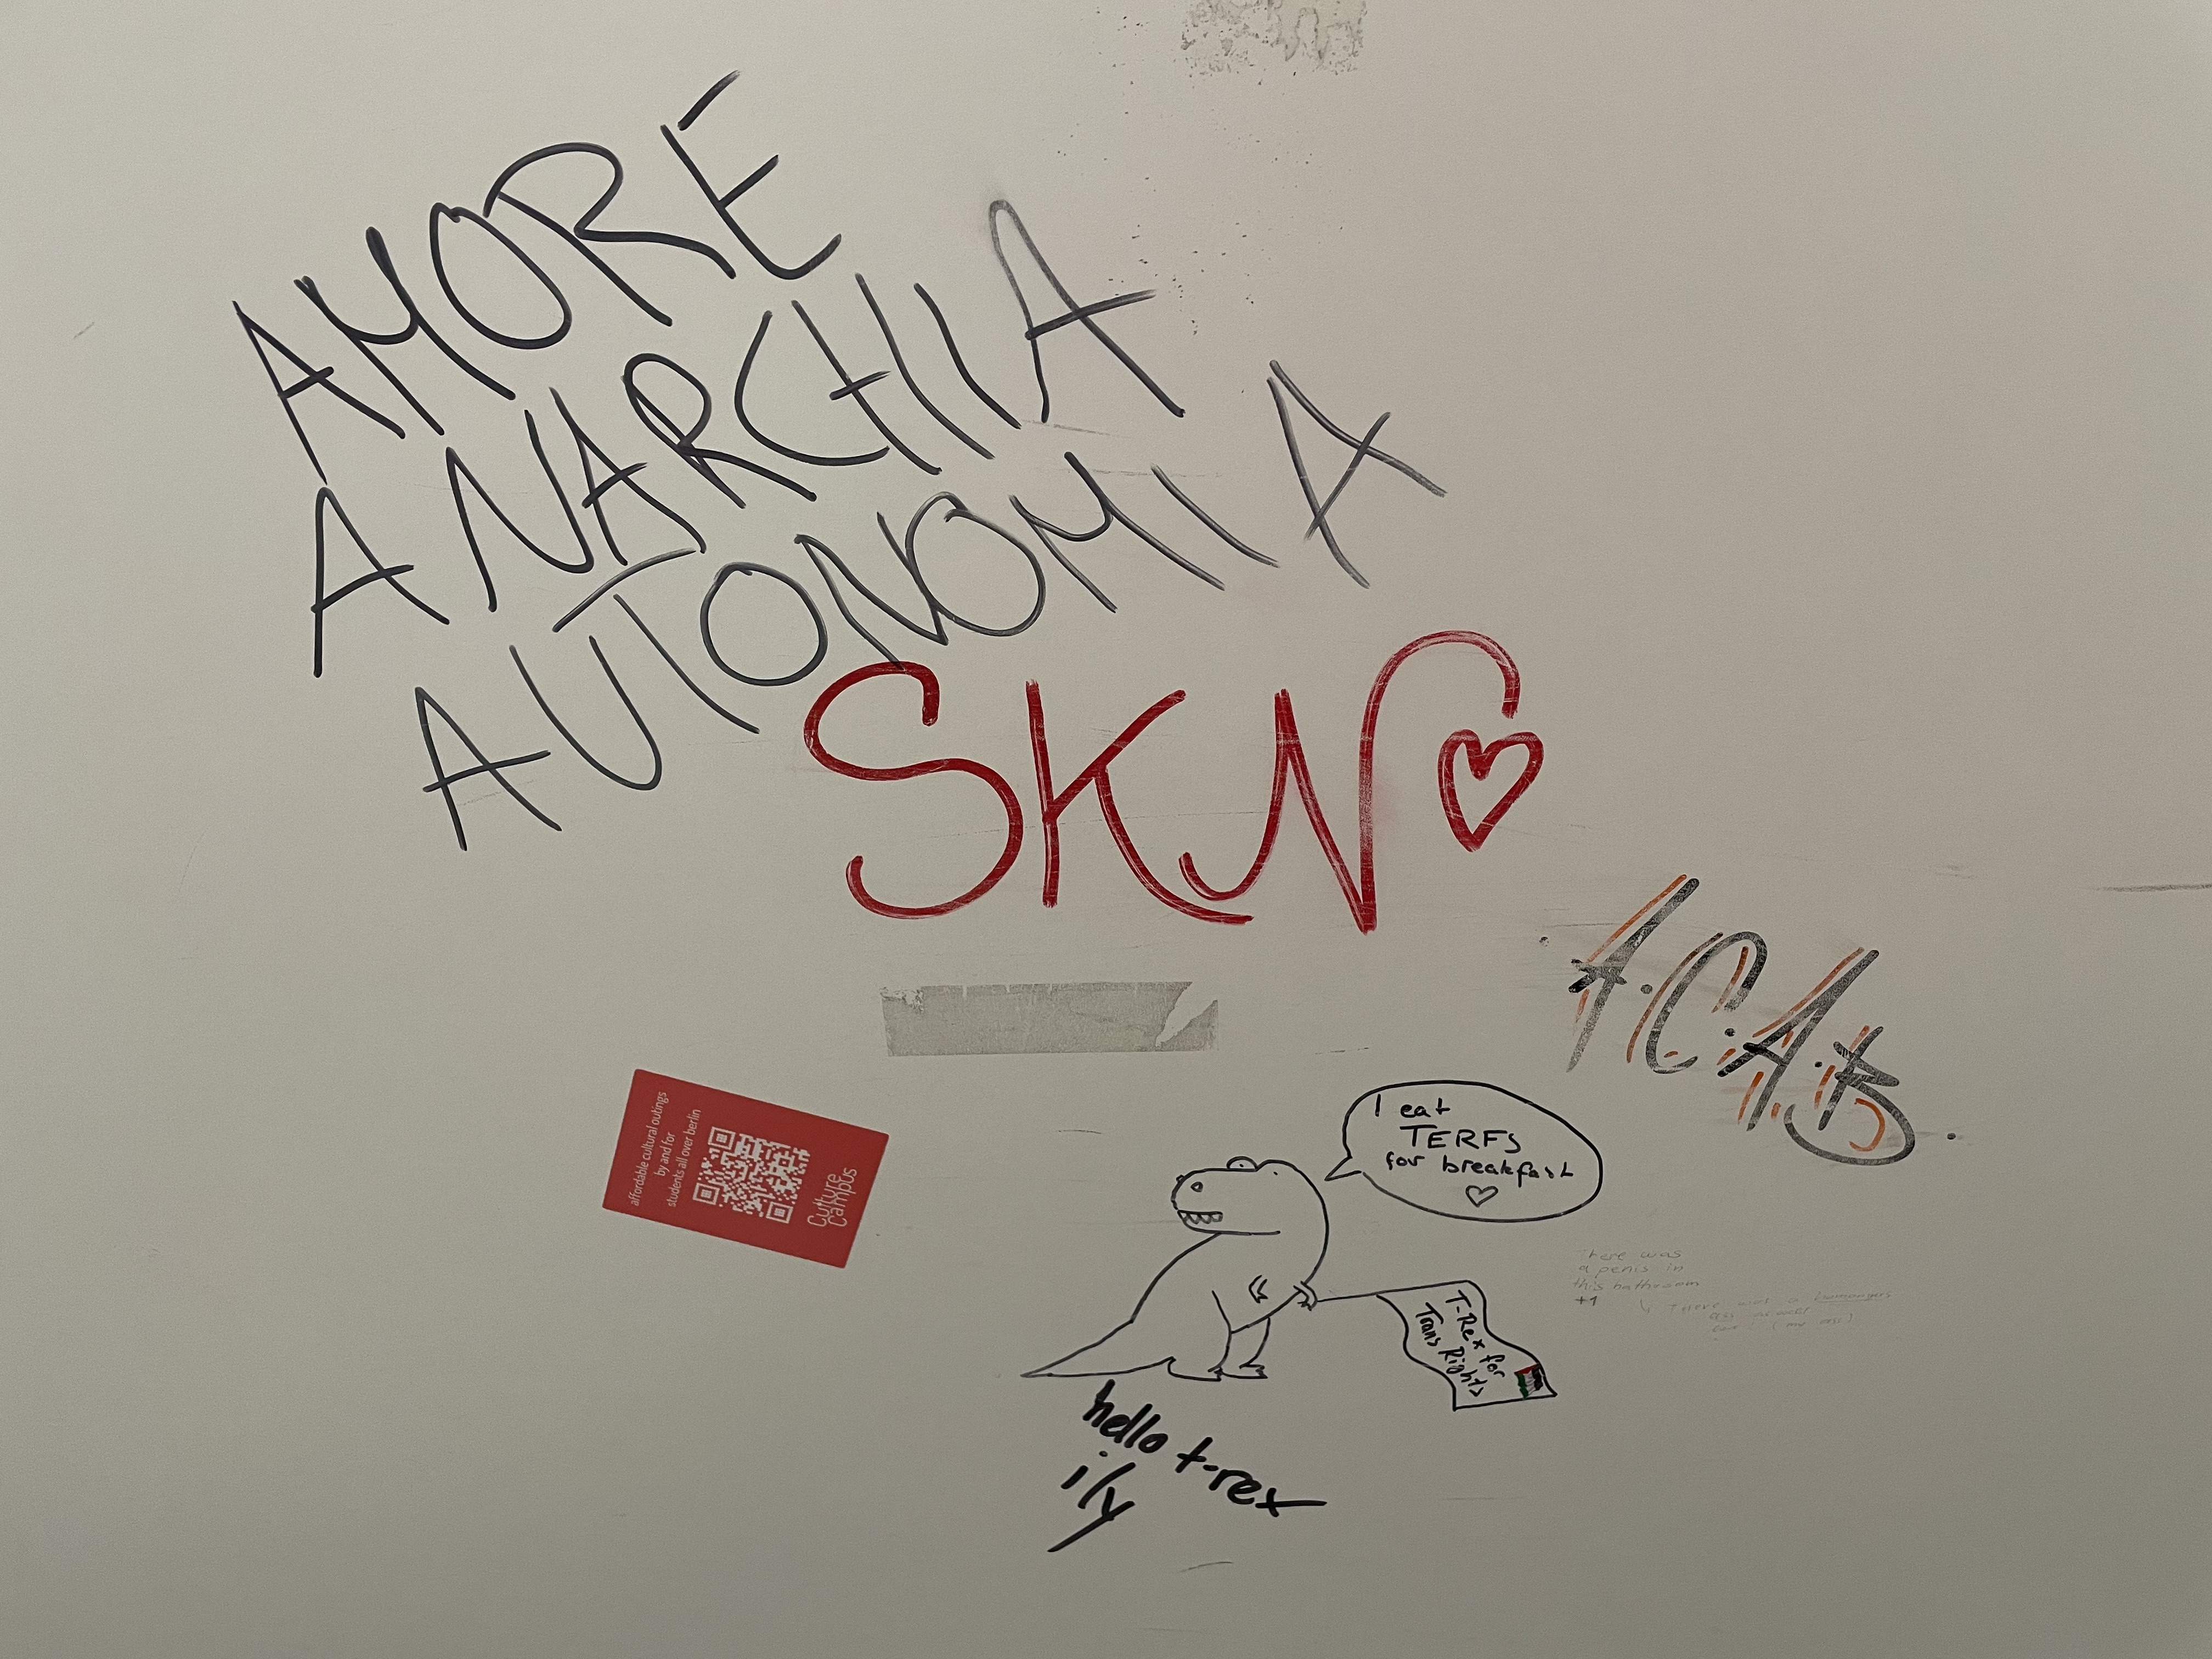 AMORE
ANARCHIA
AUTONOMIA
SKN
A.C.A.B.
affordable cultural outings
by and for
students all over berlin
Culture
Campus
I eat
TERFS
for breakfast
T-Rex for
Trans Rights
there was
a penis in
this bathroom
+1
there was a
hello t-rex
ily